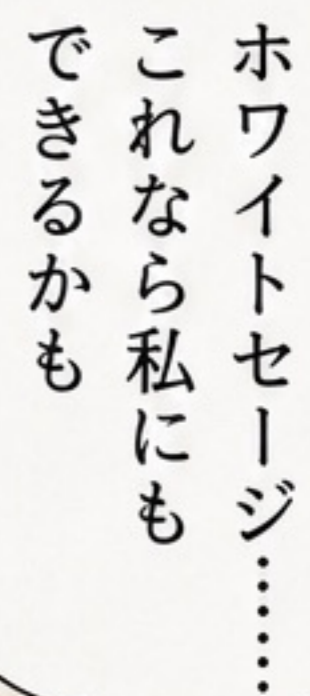 ホワイトセージ……
これなら私にも
できるかも